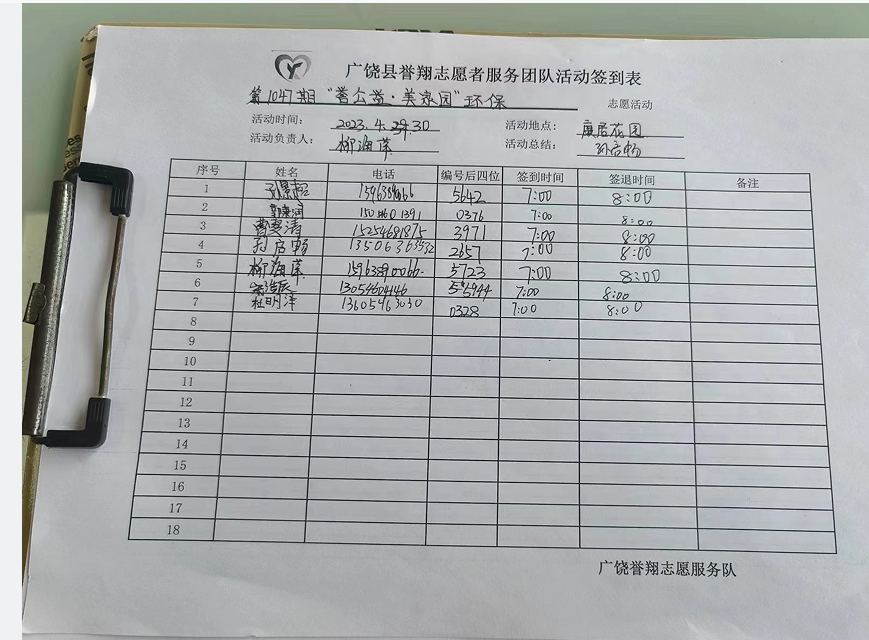 广饶县誉翔志愿者服务团队活动签到表
第1047期"善公益·美家园"环保 志愿活动
活动时间: 2023.4.29.30 活动地点: 康居花园
活动负责人: 柳海荣 活动总结: 孙启畅
序号 姓名 电话 编号后四位 签到时间 签退时间 备注
1 5642 7:00 8:00
2 0376 7:00 8:00
3 曹雯清 15254681875 3971 7:00 8:00
4 孙启畅 2657 7:00 8:00
5 柳海荣 15963890066 5723 7:00 8:00
6 13054604446 7:00 8:00
7 杜明泽 13605463030 0328 7:00 8:00
8
9
10
11
12
13
14
15
16
17
18
广饶誉翔志愿服务队